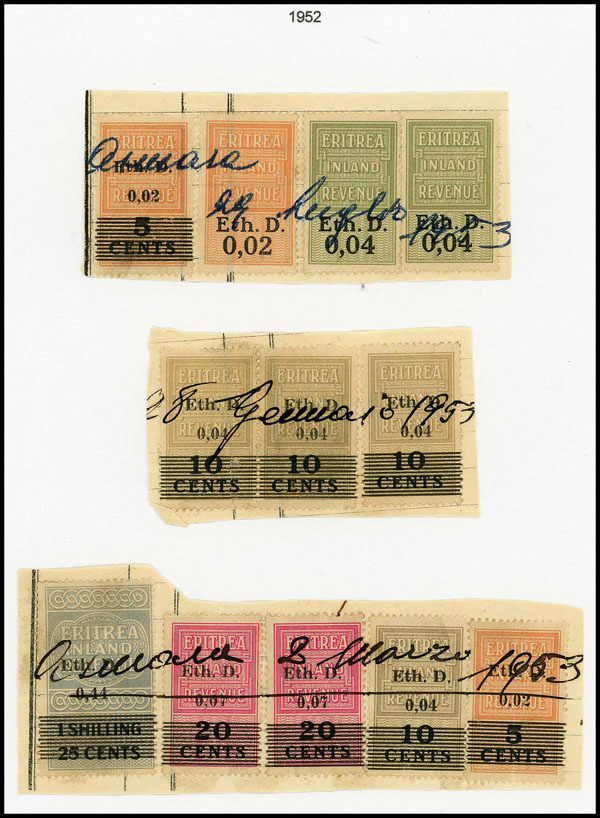 1952
ERITREA ERITREA ERITREA ERITREA
INLAND INLAND INLAND
REVENUE REVENUE REVENUE REVENUE
Asmara 29 Luglio 1953
Eth. D. Eth. D. Eth. D. Eth. D.
0,02 0,02 0,04 0,04
5
CENTS
ERITREA ERITREA ERITREA
INLAND INLAND INLAND
REVENUE REVENUE REVENUE
28 Gennaio 1953
Eth. D. Eth. D. Eth. D.
0,04 0,04 0,04
10 10 10
CENTS CENTS CENTS
ERITREA ERITREA ERITREA ERITREA ERITREA
INLAND INLAND INLAND INLAND INLAND
REVENUE REVENUE REVENUE REVENUE
Asmara 2 Marzo 1953
Eth. D. Eth. D. Eth. D. Eth. D. Eth. D.
0,44 0,07 0,07 0,04 0,02
1 SHILLING 20 20 10 5
25 CENTS CENTS CENTS CENTS CENTS